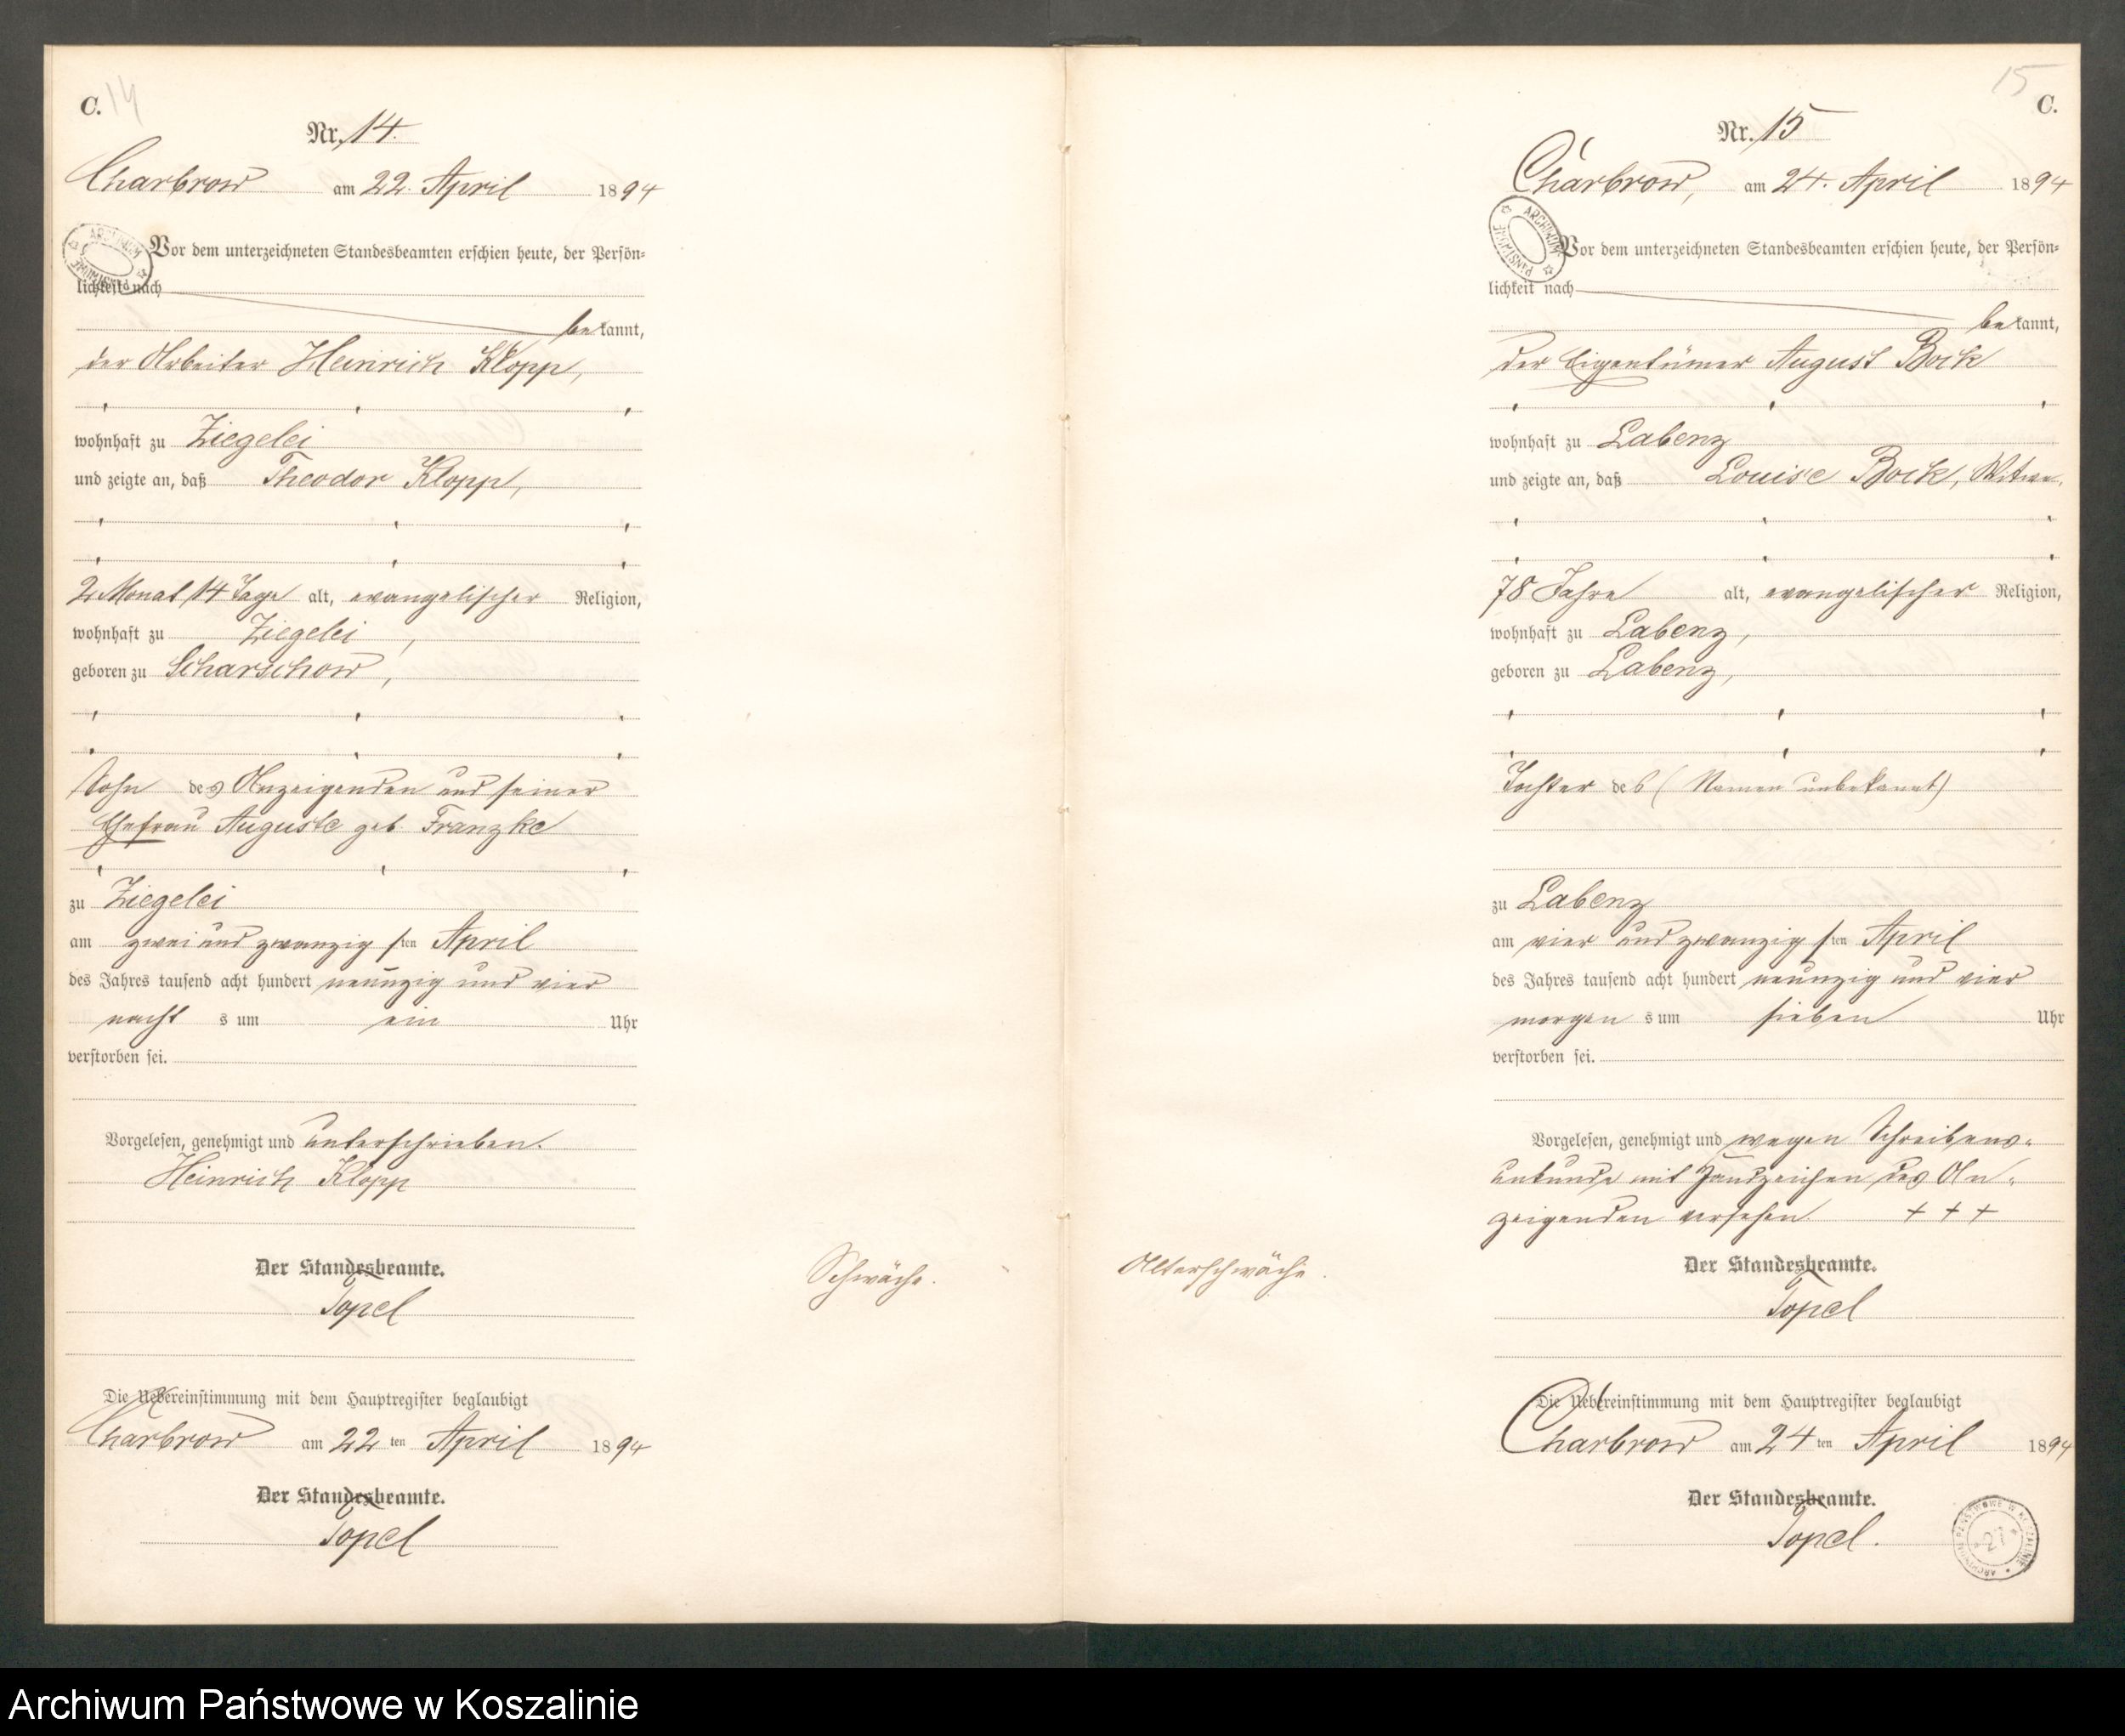 C. 14
Nr. 14.
Charbrow am 22. April 1894
ARCHIWUM PAŃSTWOWE
Vor dem unterzeichneten Standesbeamten erschien heute, der Persön=
lichkeit nach
bekannt,
der Arbeiter Heinrich Klopp,
wohnhaft zu Ziegelei
und zeigte an, daß Theodor Klopp,
2 Monat 14 Tage alt, evangelischer Religion,
wohnhaft zu Ziegelei,
geboren zu Scharschow,
Sohn des Anzeigenden und seiner
Ehefrau Auguste geb. Franzke
zu Ziegelei
am zwei und zwanzigsten April
des Jahres tausend acht hundert neunzig und vier
nachts um ein Uhr
verstorben sei.
Vorgelesen, genehmigt und unterschrieben.
Heinrich Klopp
Der Standesbeamte.
Topel
Schwäche.
Die Uebereinstimmung mit dem Hauptregister beglaubigt
Charbrow am 22 ten April 1894
Der Standesbeamte.
Topel
15 C.
Nr. 15
Charbrow, am 24. April 1894
ARCHIWUM PAŃSTWOWE
Vor dem unterzeichneten Standesbeamten erschien heute, der Persön=
lichkeit nach
bekannt,
der Eigentümer August Bock
wohnhaft zu Labenz
und zeigte an, daß Louise Bock, Witwe,
78 Jahre alt, evangelischer Religion,
wohnhaft zu Labenz,
geboren zu Labenz,
Tochter des (Namen unbekannt)
zu Labenz
am vier und zwanzigsten April
des Jahres tausend acht hundert neunzig und vier
morgens um sieben Uhr
verstorben sei.
Vorgelesen, genehmigt und wegen Schreibens=
unkunde mit Handzeichen des An=
zeigenden versehen. + + +
Der Standesbeamte.
Topel
Alterschwäche.
Die Uebereinstimmung mit dem Hauptregister beglaubigt
Charbrow am 24 ten April 1894
Der Standesbeamte.
Topel.
ARCHIWUM PAŃSTWOWE W KOSZALINIE
27
Archiwum Państwowe w Koszalinie